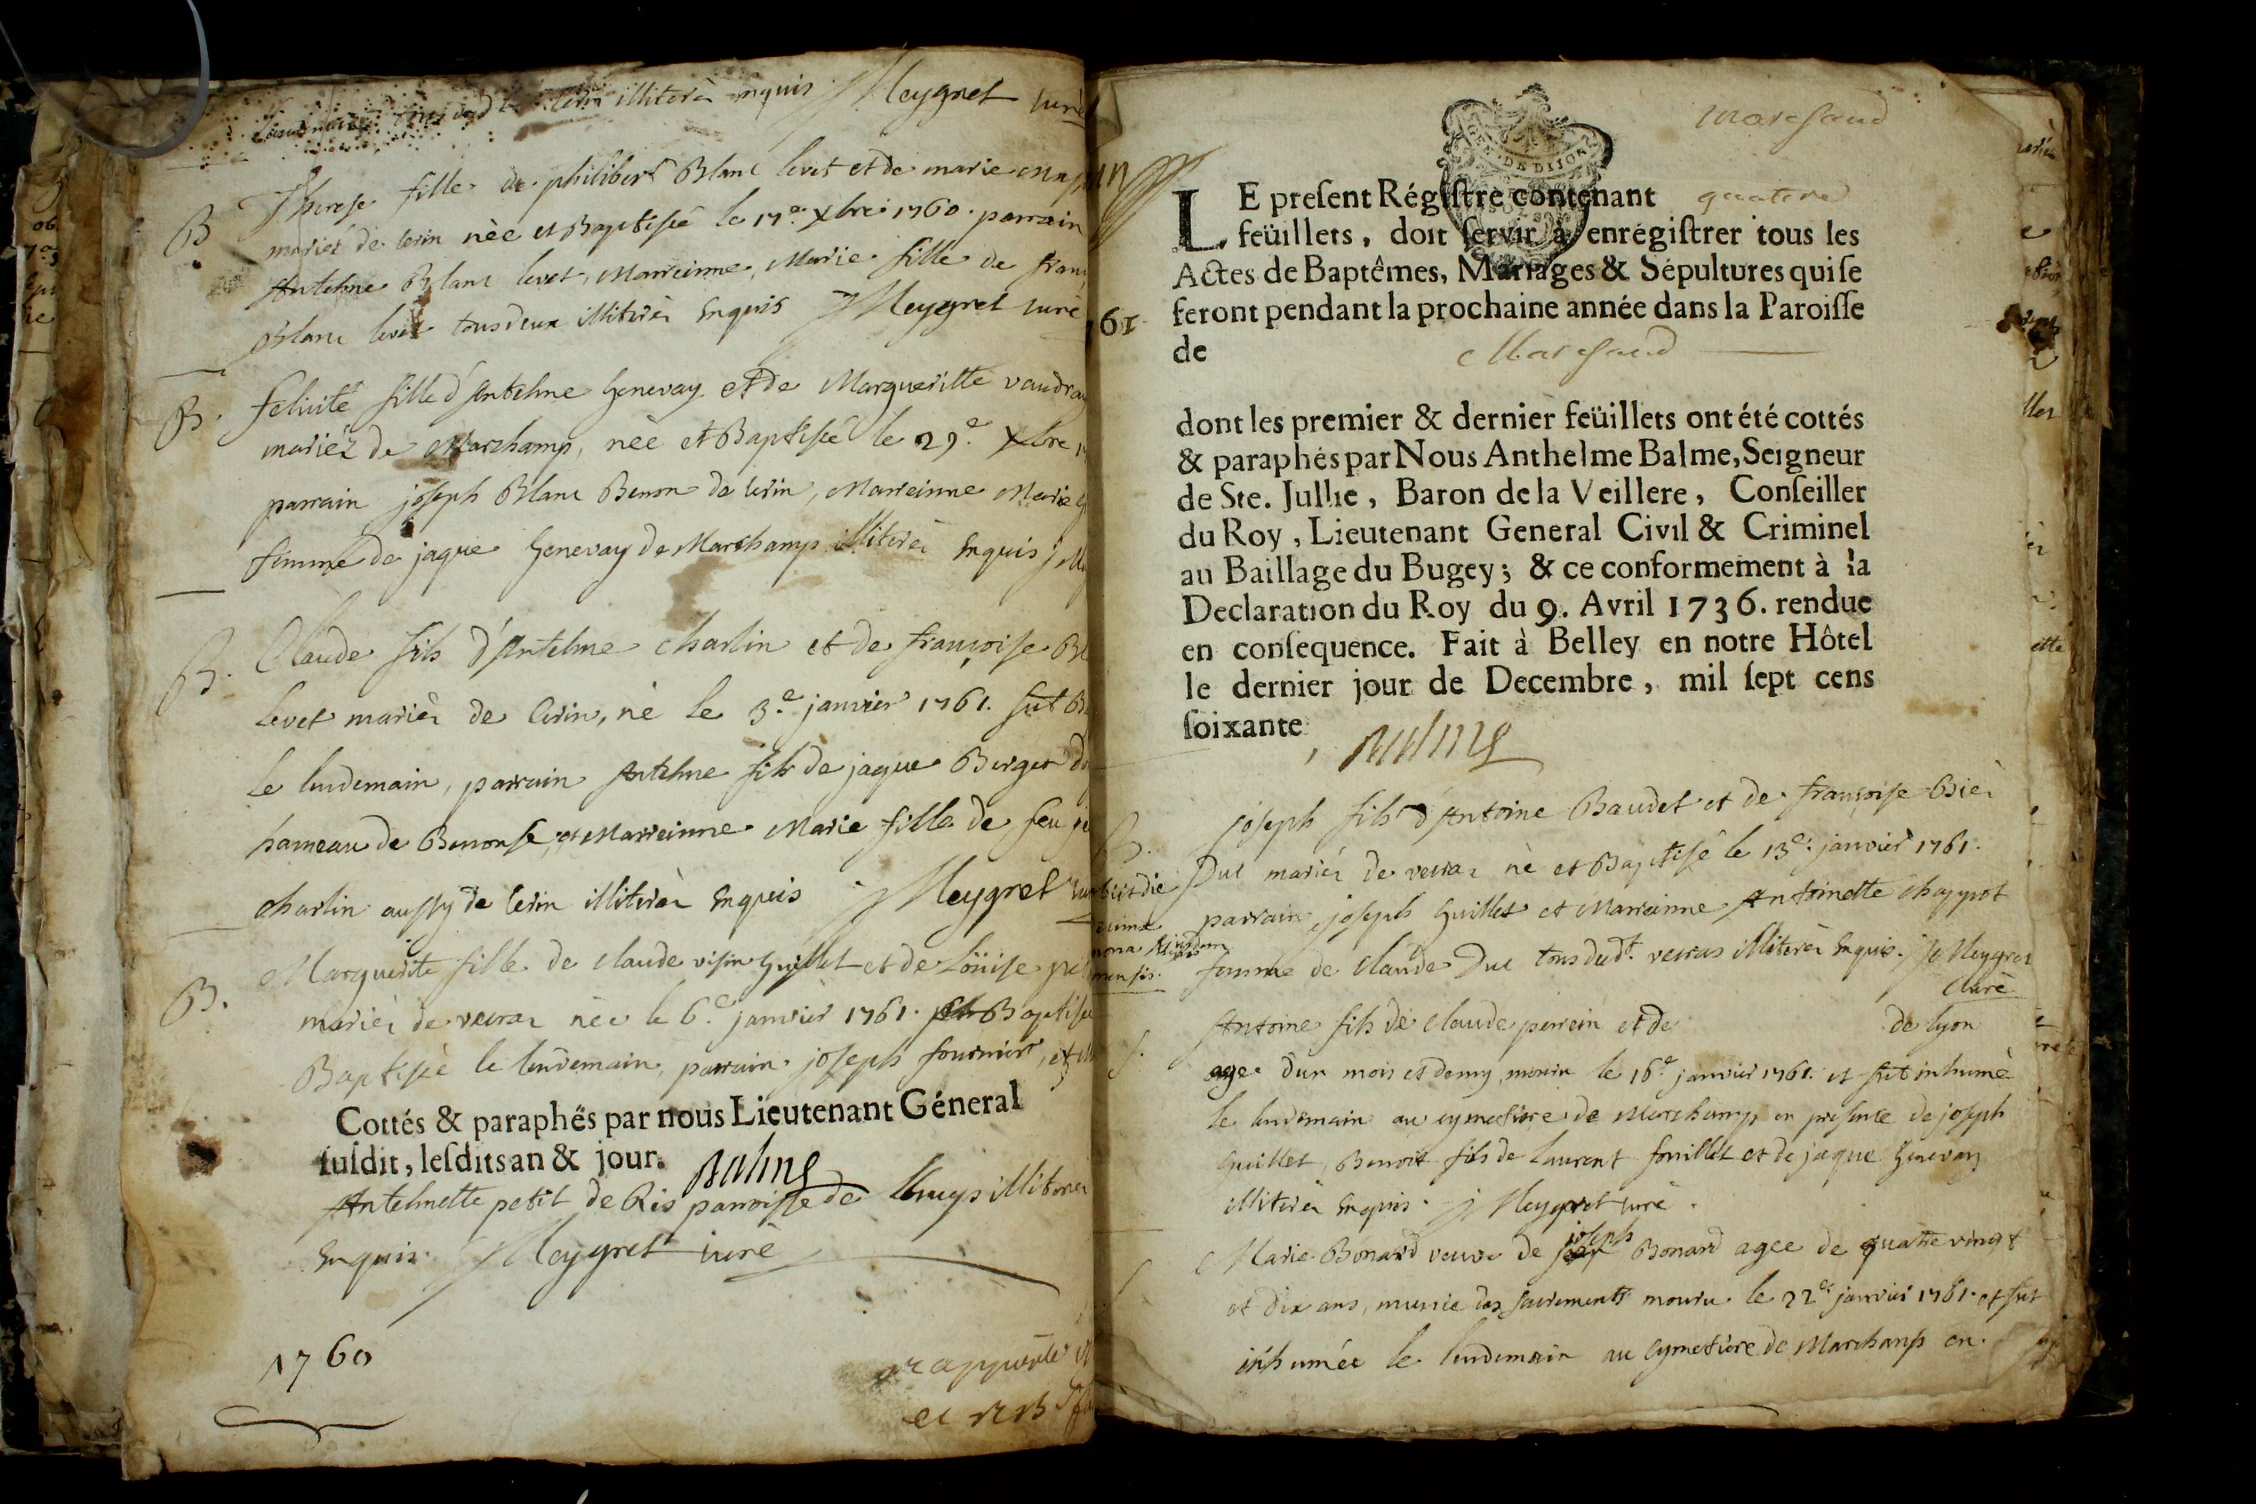 illiterès enquis J Meygret curé
B Therese fille de philibert Blanc levet et de marie
mariés de cerin née et Baptisée le 17e. Xbre 1760. parrain
Antelme Blanc levet, Marreinne, Marie fille de
Blanc levet tous deux illiterès enquis J Meygret curé
B. felicité fille d'Antelme Genevay et de Margueritte
mariéz de Marchamp, née et Baptisée le 29e. Xbre
parrain joseph Blanc Benon de cerin, Marreinne Marie
femme de jaque Genevay de Marchamp illiterès enquis
B. Claude fils d'Antelme charlin et de françoise
levet mariés de Cerin, né le 3e. janvier 1761. fut
le lendemain, parrain Antelme fils de jaque Berger
hameau de Benonse, et Marreinne Marie fille de feu
charlin aussy de cerin illiterès enquis J Meygret
B. Marguerite fille de claude visin Guillet et de Loüise
mariés de veiras née le 6e. janvier 1761. Baptisée
Baptisée le lendemain, parrain joseph fournier, et
Cottés & paraphés par nous Lieutenant Géneral
susdit, lesdits an & jour. Balme
Antelmette petit de Ris parroisse de Lhuys illiterès
Enquis. J Meygret curé
1760
61.
marchand
GEN. DE DIJON
LE present Régistre contenant quatorze
feüillets, doit servir à enrégistrer tous les
Actes de Baptêmes, Mariages & Sépultures qui se
feront pendant la prochaine année dans la Paroisse
de Marchand
dont les premier & dernier feüillets ont été cottés
& paraphés par Nous Anthelme Balme, Seigneur
de Ste. Jullie, Baron de la Veillere, Conseiller
du Roy, Lieutenant General Civil & Criminel
au Baillage du Bugey; & ce conformement à la
Declaration du Roy du 9. Avril 1736. rendue
en consequence. Fait à Belley en notre Hôtel
le dernier jour de Decembre, mil sept cens
soixante, Balme
B. joseph fils d'Antoine Baudet et de françoise
Duc mariés de veiras né et Baptisé le 13e. janvier 1761.
parrain joseph Guillet et Marreinne Antoinette chappot
femme de claude Duc tous dudt. veiras illiterès enquis. J Meygret
curé
S. Antoine fils de claude perrein et de de lyon
age d'un mois et demy, mouru le 16e. janvier 1761. et fut inhumé
le lendemain au cymetiere de Marchamp en presence de joseph
Guillet, Benoit fils de laurent fouillet et de jaque Genevay
illiterès enquis. J Meygret curé.
Marie Bonard veuve de joseph Bonard agee de quatre vingt
et dix ans, munie des sacrements mouru le 22e janvier 1761. et fut
inhumée le lendemain au cymetiere de Marchamp en